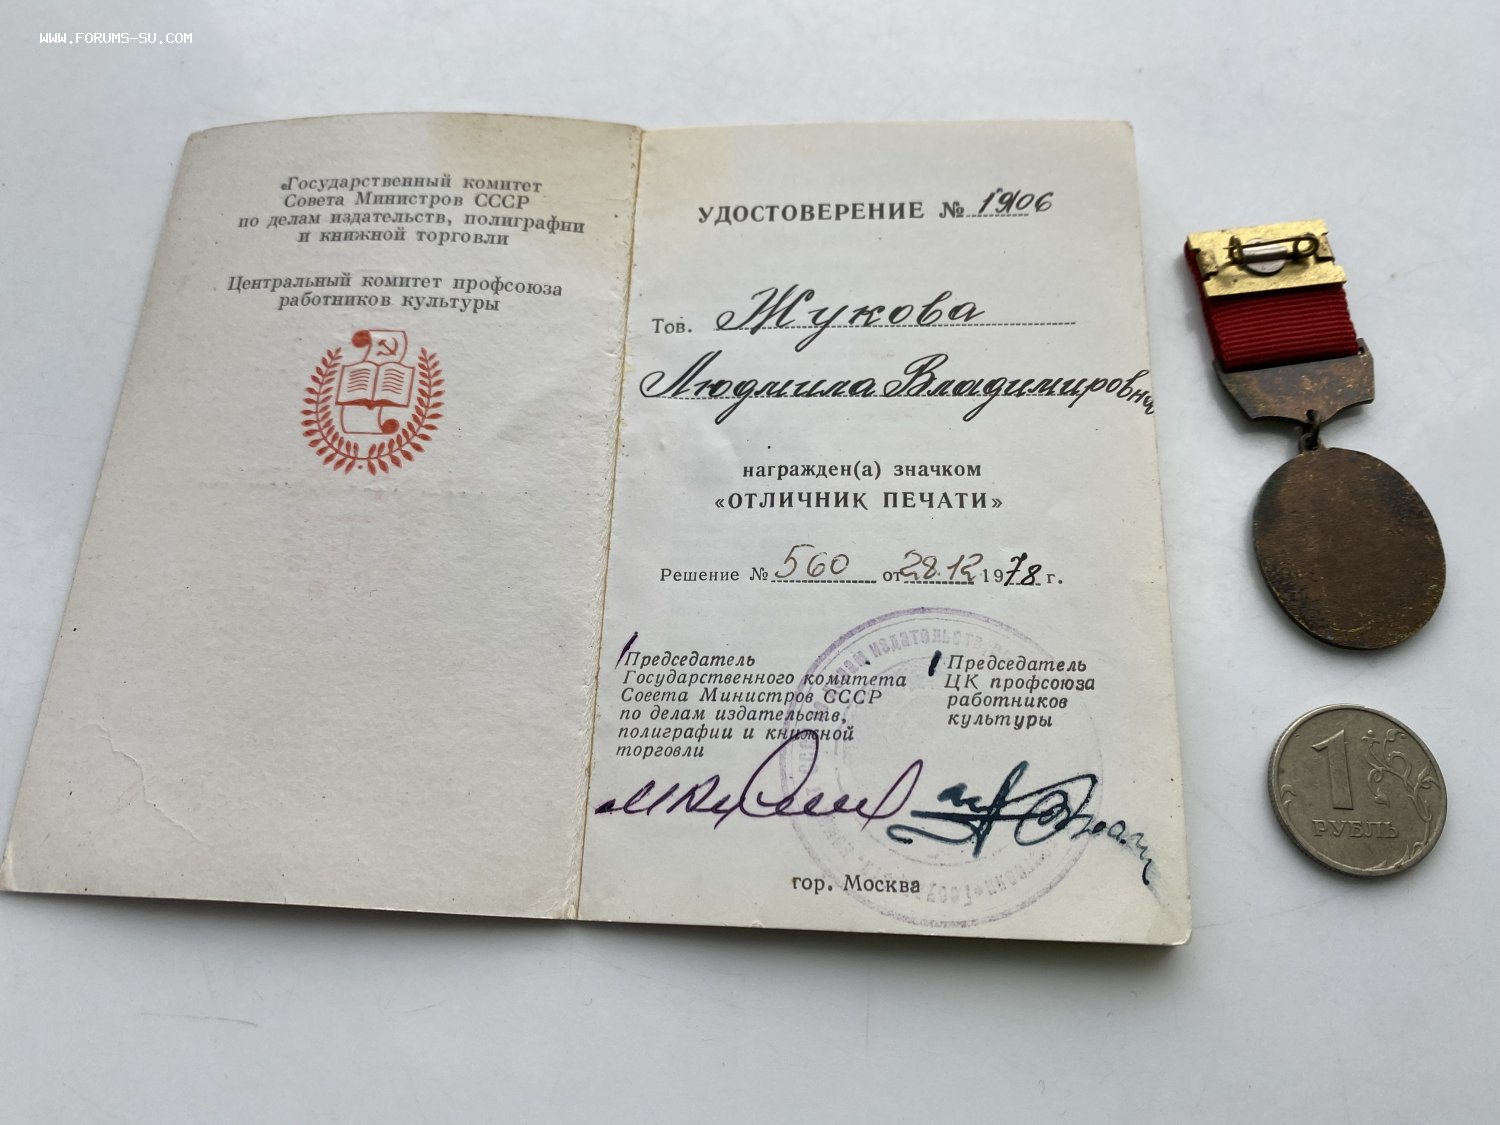 WWW.FORUMS-SU.COM
Государственный комитет
Совета Министров СССР
по делам издательств, полиграфии
и книжной торговли
Центральный комитет профсоюза
работников культуры
УДОСТОВЕРЕНИЕ № 1906
Тов. Жукова
Людмила Владимировна
награжден(а) значком
«ОТЛИЧНИК ПЕЧАТИ»
Решение № 560 от 28.12 1978 г.
Председатель
Государственного комитета
Совета Министров СССР
по делам издательств,
полиграфии и книжной
торговли
Председатель
ЦК профсоюза
работников
культуры
гор. Москва
1
РУБЛЬ